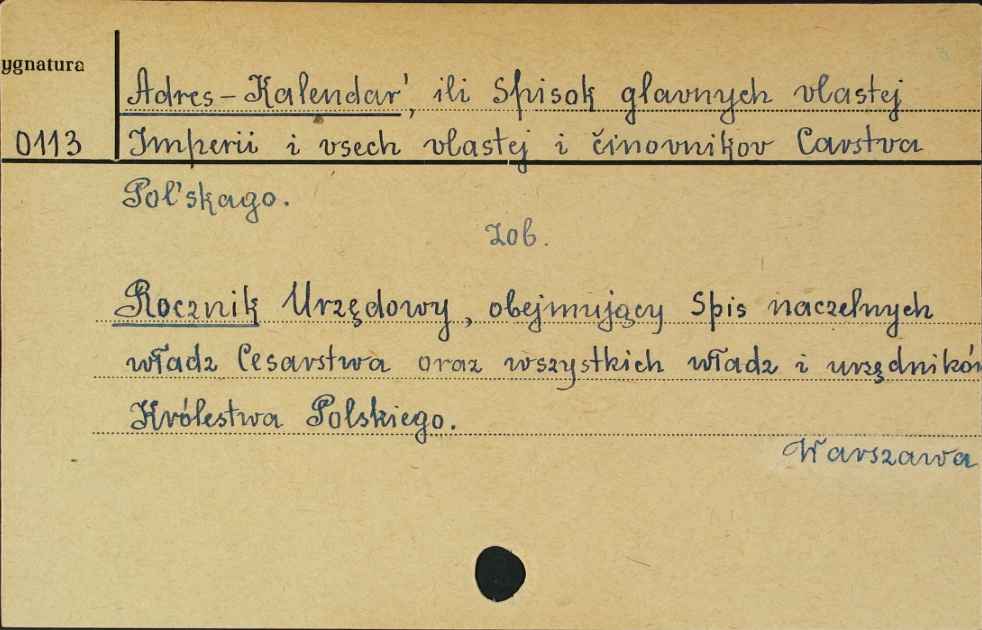 ygnatura
Adres-Kalendar', ili Spisok glavnych vlastej
0113 Imperii i vsech vlastej i činovnikov Carstva
Pol'skago.
Zob.
Rocznik Urzędowy, obejmujący Spis naczelnych
władz Cesarstwa oraz wszystkich władz i urzędników
Królestwa Polskiego.
Warszawa